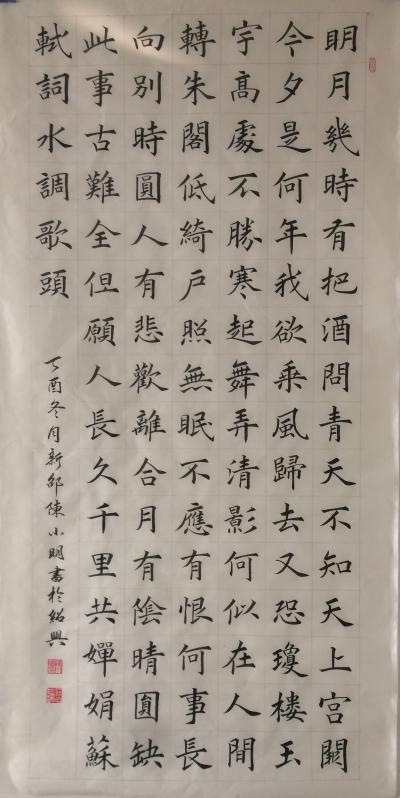 明月幾時有把酒問青天不知天上宮闕
今夕是何年我欲乘風歸去又恐瓊楼玉
宇高處不勝寒起舞弄清影何似在人間
轉朱閣低綺戶照無眠不應有恨何事長
向別時圓人有悲歡離合月有陰晴圓缺
此事古難全但願人長久千里共嬋娟蘇
軾詞水調歌頭
丁酉冬月新邵陳小明書於紹興